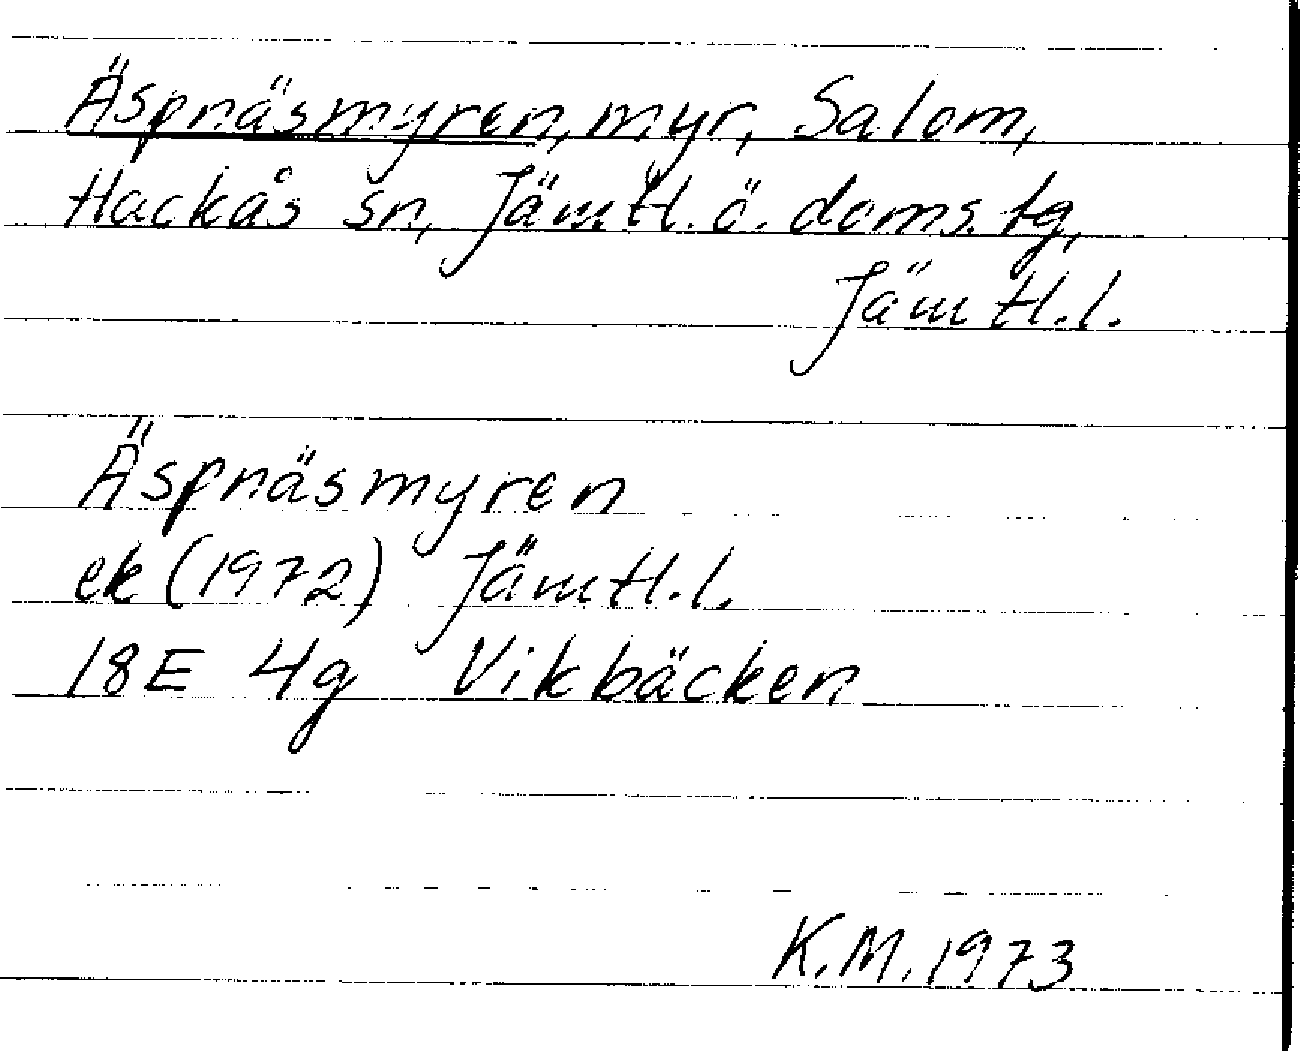 Äspnäsmyren, myr, Salom,
Hackås sn, Jämtl. ö. doms. tg,
Jämtl. l.
Äspnäsmyren
ek (1972) Jämtl. l.
18E 4g Vikbäcken
K.M. 1973